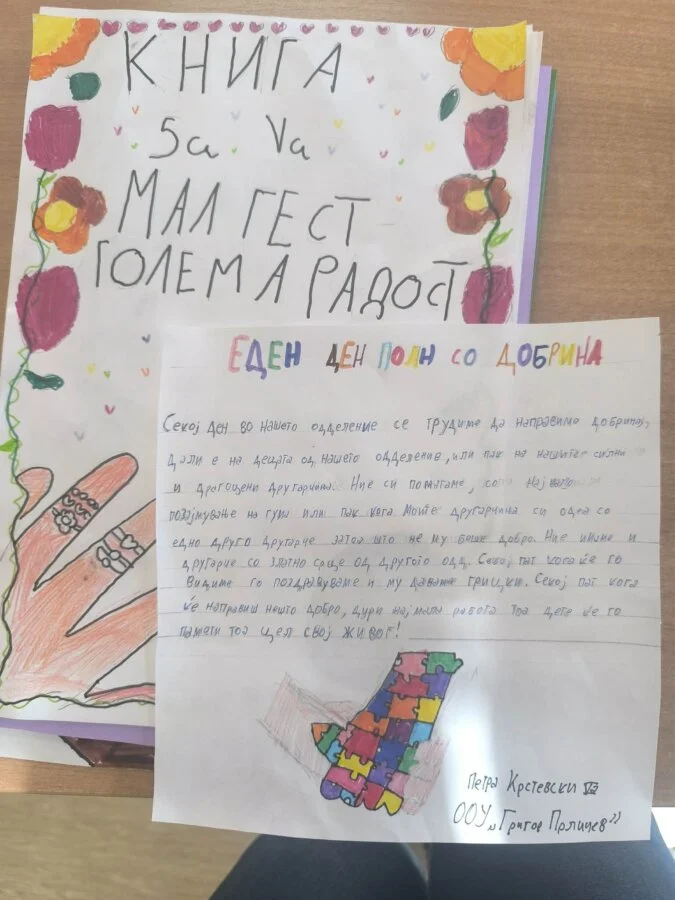 КНИГА
5а Vа
МАЛ ГЕСТ
ГОЛЕМА РАДОСТ
ЕДЕН ДЕН ПОЛН СО ДОБРИНА
Секој ден во нашето одделение се трудиме да направиме добрина,
дали е на децата од нашето одделение, или пак на нашите силни
и драгоцени другарчина. Ние си помагаме, со
позајмување на гума или пак кога моите другарчина си одеа со
едно друго другарче затоа што не му беше добро. Ние имаме и
другарче со златно срце од другото одд. Секој пат кога ќе го
видиме го поздравуваме и му даваме грицки. Секој пат кога
ќе направиш нешто добро, дури најмала работа тоа дете ќе го
памати тоа цел свој живот!
Петра Крстевски Vа
ООУ „Григор Прличев"